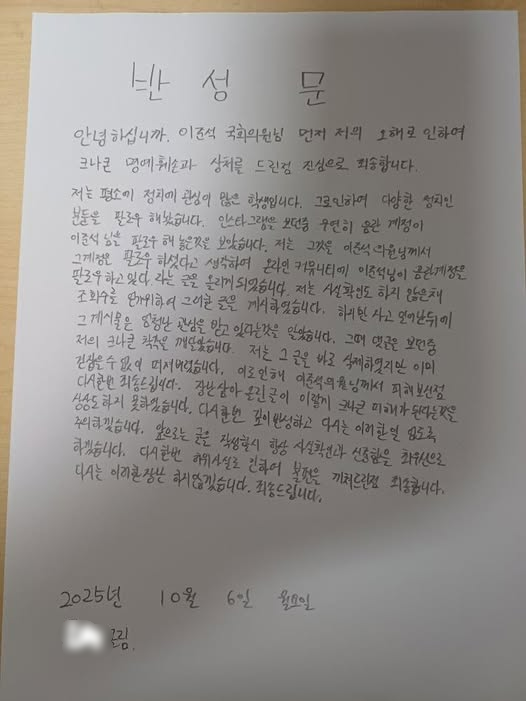 반 성 문
안녕하십니까. 이준석 국회의원님 먼저 저의 오해로 인하여
크나큰 명예훼손과 상처를 드린점 진심으로 죄송합니다.
저는 평소에 정치에 관심이 많은 학생입니다. 그로인하여 다양한 정치인
분들을 팔로우 해놨습니다. 인스타그램을 보던중 우연히 음란 계정이
이준석 님을 팔로우 해 놓은것을 보았습니다. 저는 그것을 이준석 의원님께서
그계정을 팔로우 하셨다고 생각하여 온라인 커뮤니티에 이준석님이 음란계정을
팔로우 하고 있다. 라는 글을 올리게 되었습니다. 저는 사실확인도 하지 않은채
조회수를 얻기위하여 그러한 글을 게시하였습니다. 하지만 자고 일어난뒤에
그 게시물은 엄청난 관심을 받고 있다는것을 알았습니다. 그때 댓글을 보던중
저의 크나큰 착각을 깨달았습니다. 저는 그 글을 바로 삭제하였지만 이미
걷잡을수 없이 퍼져버렸습니다. 이로인해 이준석의원님께서 피해보신점
다시한번 죄송드립니다. 장난삼아 올린 글이 이렇게 크나큰 피해가 된다는것을
상상도 하지 못하였습니다. 다시한번 깊이 반성하고 다시는 이러한 일 없도록
주의하겠습니다. 앞으로는 글을 작성할시 항상 사실확인과 신중함을 최우선으로
하겠습니다. 다시한번 허위사실로 인하여 불편을 끼쳐드린점 죄송합니다.
다시는 이러한 장난 하지않겠습니다. 죄송드립니다.
2025년 10월 6일 월요일
올림.